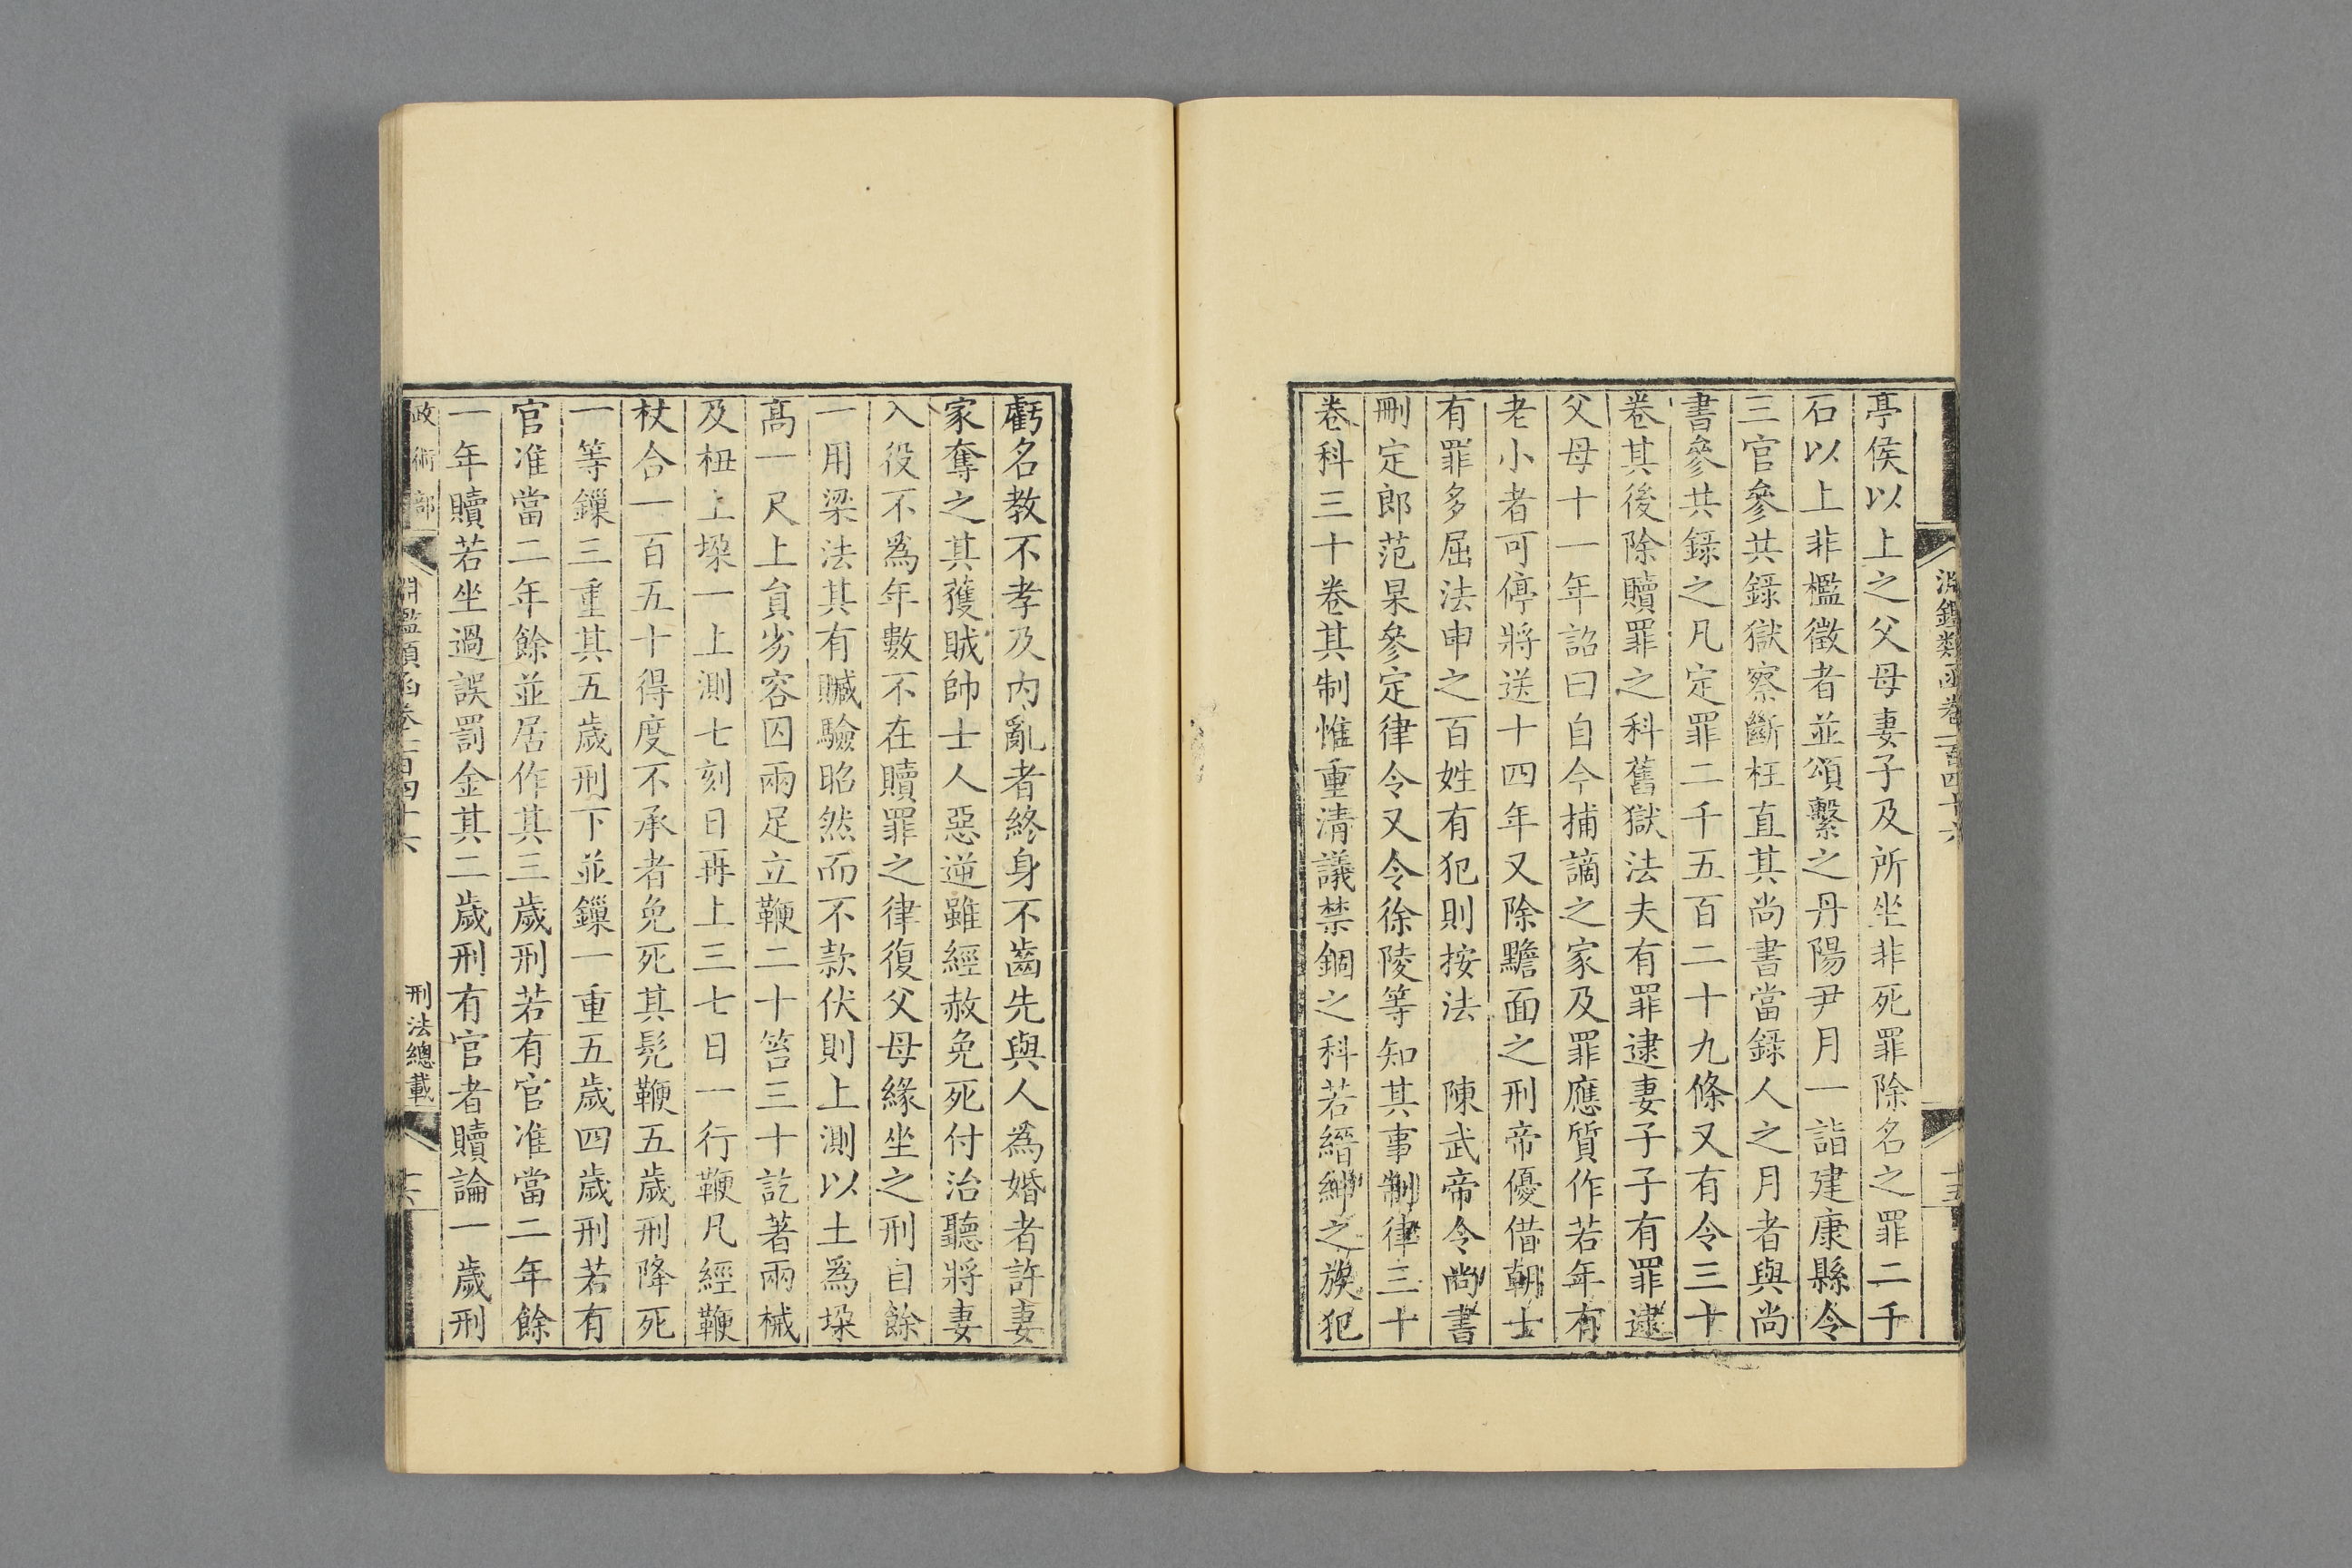 淵鑑類函卷二百四十六
十五
亭侯以上之父母妻子及所坐非死罪除名之罪二千
石以上非檻徵者並頌繫之丹陽尹月一詣建康縣令
三官參共録獄察斷枉直其尚書當録人之月者與尚
書參共録之凡定罪二千五百二十九條又有令三十
卷其後除贖罪之科舊獄法夫有罪逮妻子子有罪逮
父母十一年詔曰自今捕謫之家及罪應質作若年有
老小者可停將送十四年又除黵面之刑帝優借朝士
有罪多屈法申之百姓有犯則按法　陳武帝令尚書
刪定郎范杲參定律令又令徐陵等知其事制律三十
卷科三十卷其制惟重清議禁錮之科若縉紳之族犯
虧名教不孝及内亂者終身不齒先與人爲婚者許妻
家奪之其獲賊帥士人惡逆雖經赦免死付治聽將妻
入役不爲年數不在贖罪之律復父母緣坐之刑自餘
一用梁法其有贓驗昭然而不款伏則上測以土爲垛
高一尺上負劣容囚兩足立鞭二十笞三十訖著兩械
及杻上垛一上測七刻日再上三七日一行鞭凡經鞭
杖合一百五十得度不承者免死其髡鞭五歲刑降死
一等鏁三重其五歲刑下並鏁一重五歲四歲刑若有
官准當二年餘並居作其三歲刑若有官准當二年餘
一年贖若坐過誤罰金其二歲刑有官者贖論一歲刑
政術部
淵鑑類函卷二百四十六
刑法總載
十六